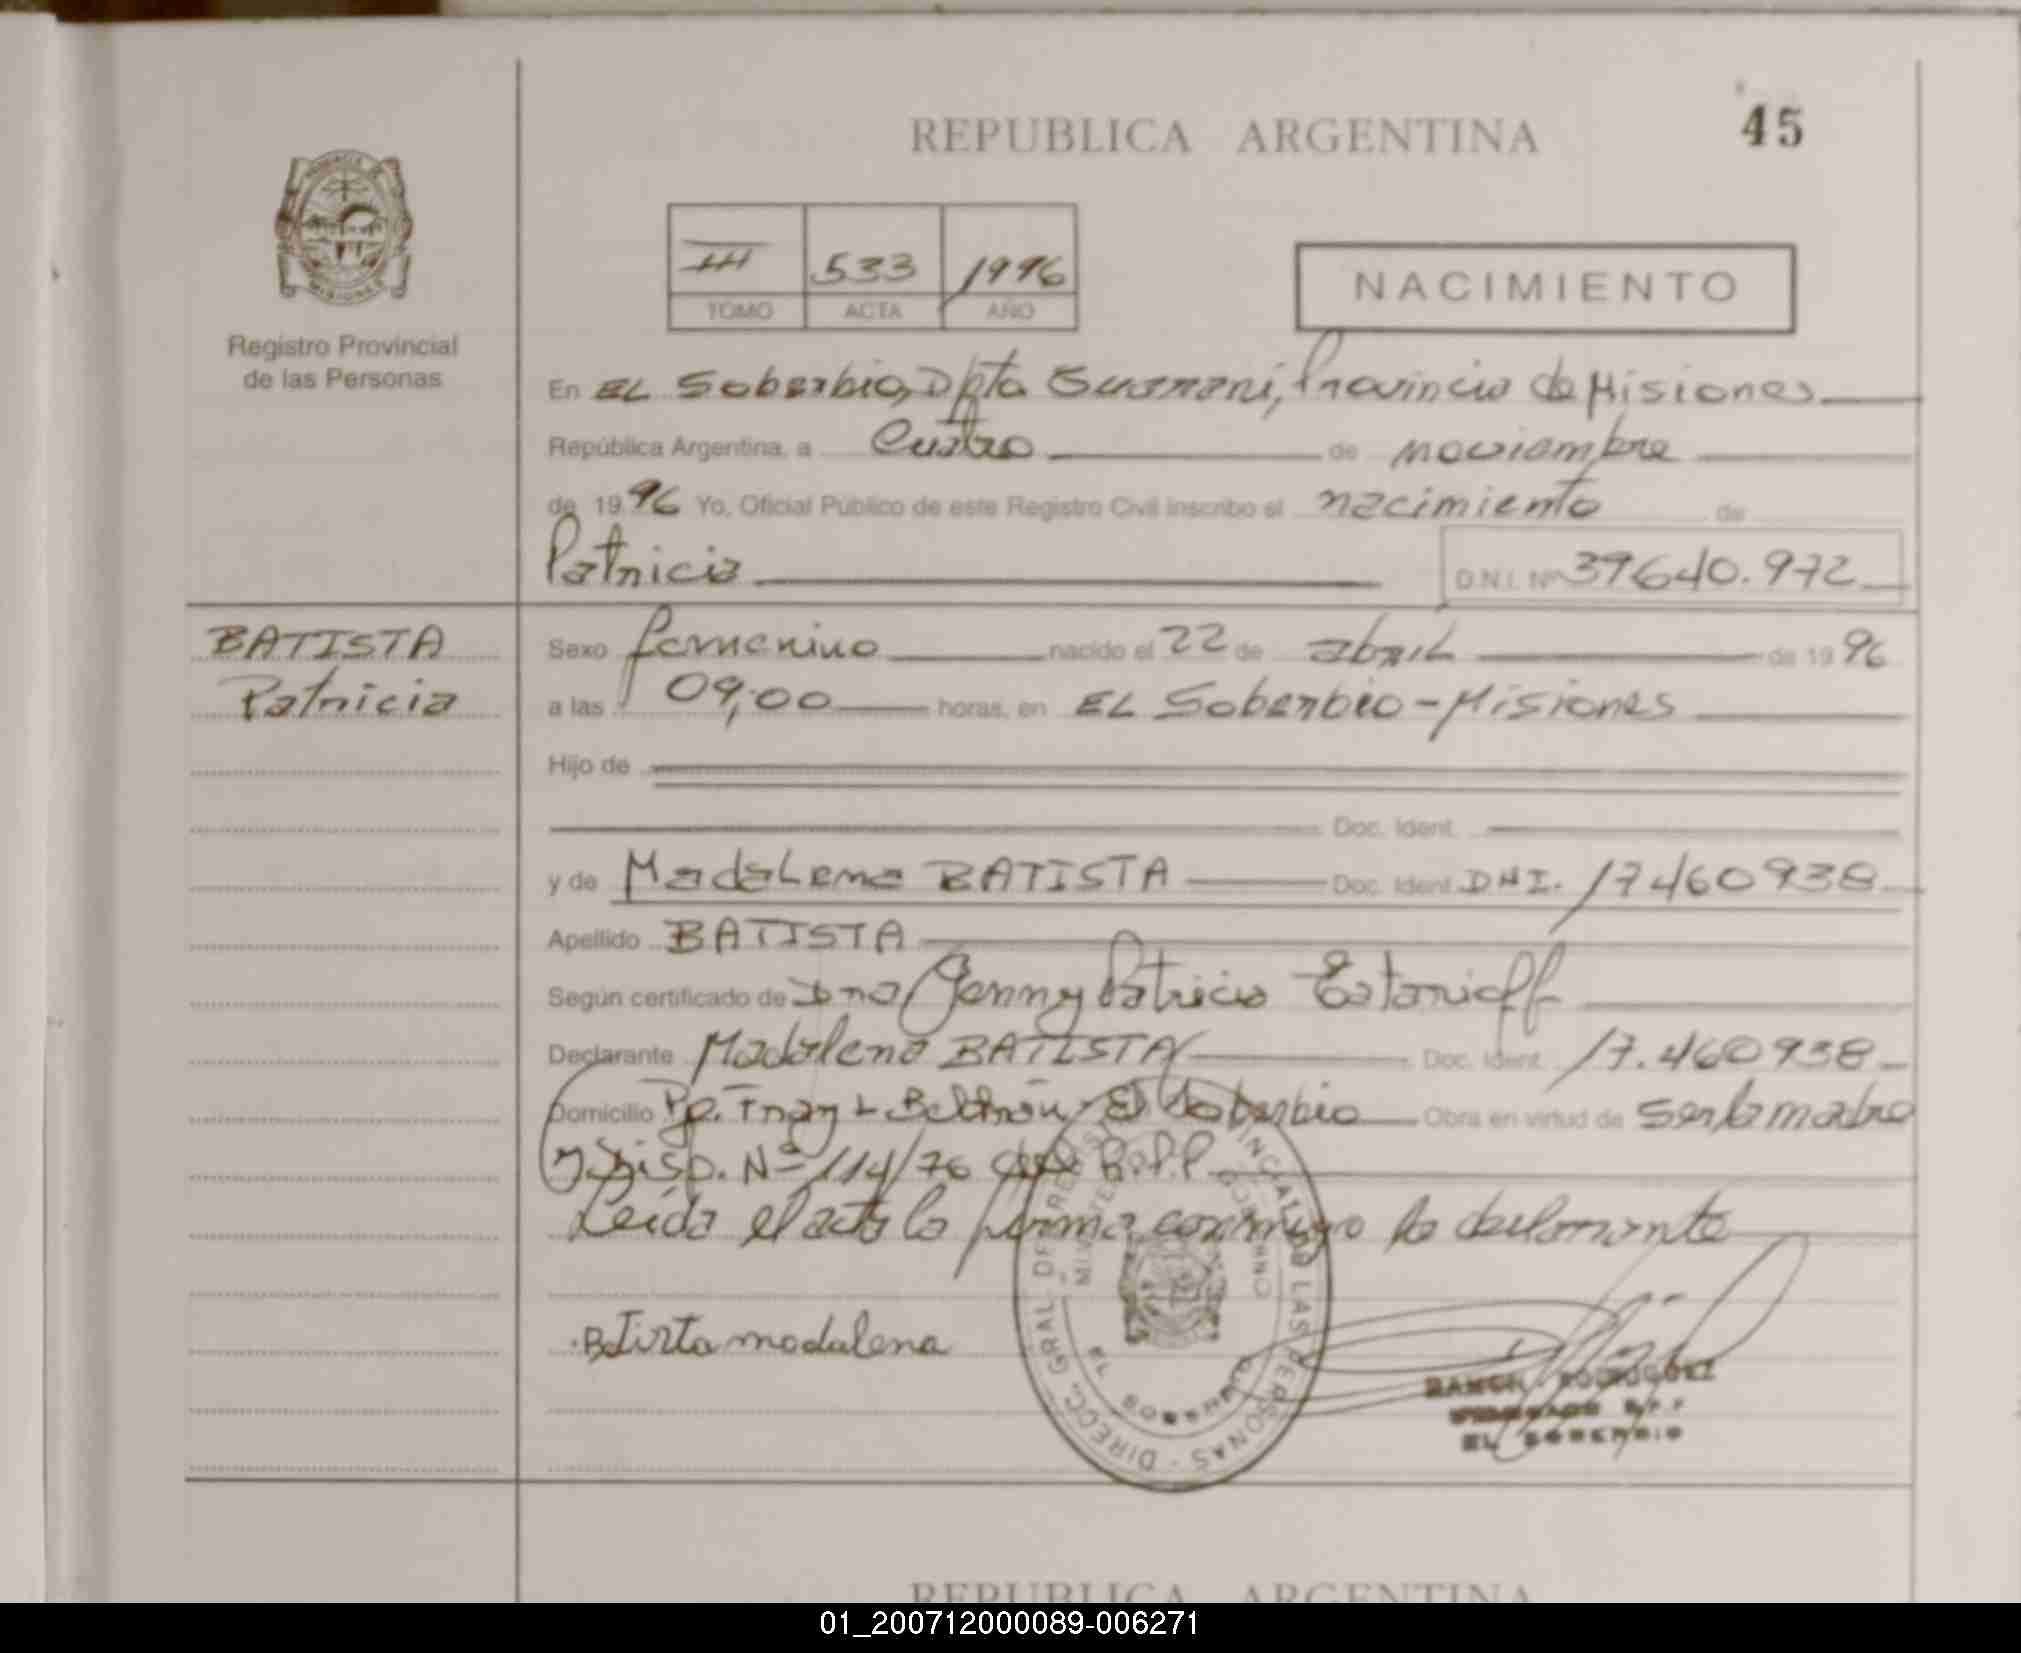 REPUBLICA ARGENTINA
45
PROVINCIA DE MISIONES
Registro Provincial
de las Personas
III 533 1996
TOMO ACTA AÑO
NACIMIENTO
En EL Soberbio, Dpto Guarani, Provincia de Misiones
República Argentina, a Cuatro de noviembre
de 1996 Yo, Oficial Público de este Registro Civil Inscribo el nacimiento de
Patricia D.N.I. Nº 39640.972
BATISTA
Patricia
Sexo femenino nacido el 22 de abril de 1996
a las 09,00 horas, en EL Soberbio - Misiones
Hijo de
Doc. Ident.
y de Madalena BATISTA Doc. Ident. DNI. 17460938
Apellido BATISTA
Según certificado de Dna Jenny Patricia
Declarante Madalena BATISTA Doc. Ident. 17.460938
Domicilio Pje. Fray L Beltrán - El Soberbio Obra en virtud de ser la madre
y Disp. Nº 114/76 del R.P.P.
Leída el acta la firma conmigo la declarante
Batista madalena
DIRECC. GRAL. DE REGISTRO PROVINCIAL DE LAS PERSONAS
MINISTERIO DE GOBIERNO
RAMON RODRIGUEZ
EL SOBERBIO
REPUBLICA ARGENTINA
01_200712000089-006271